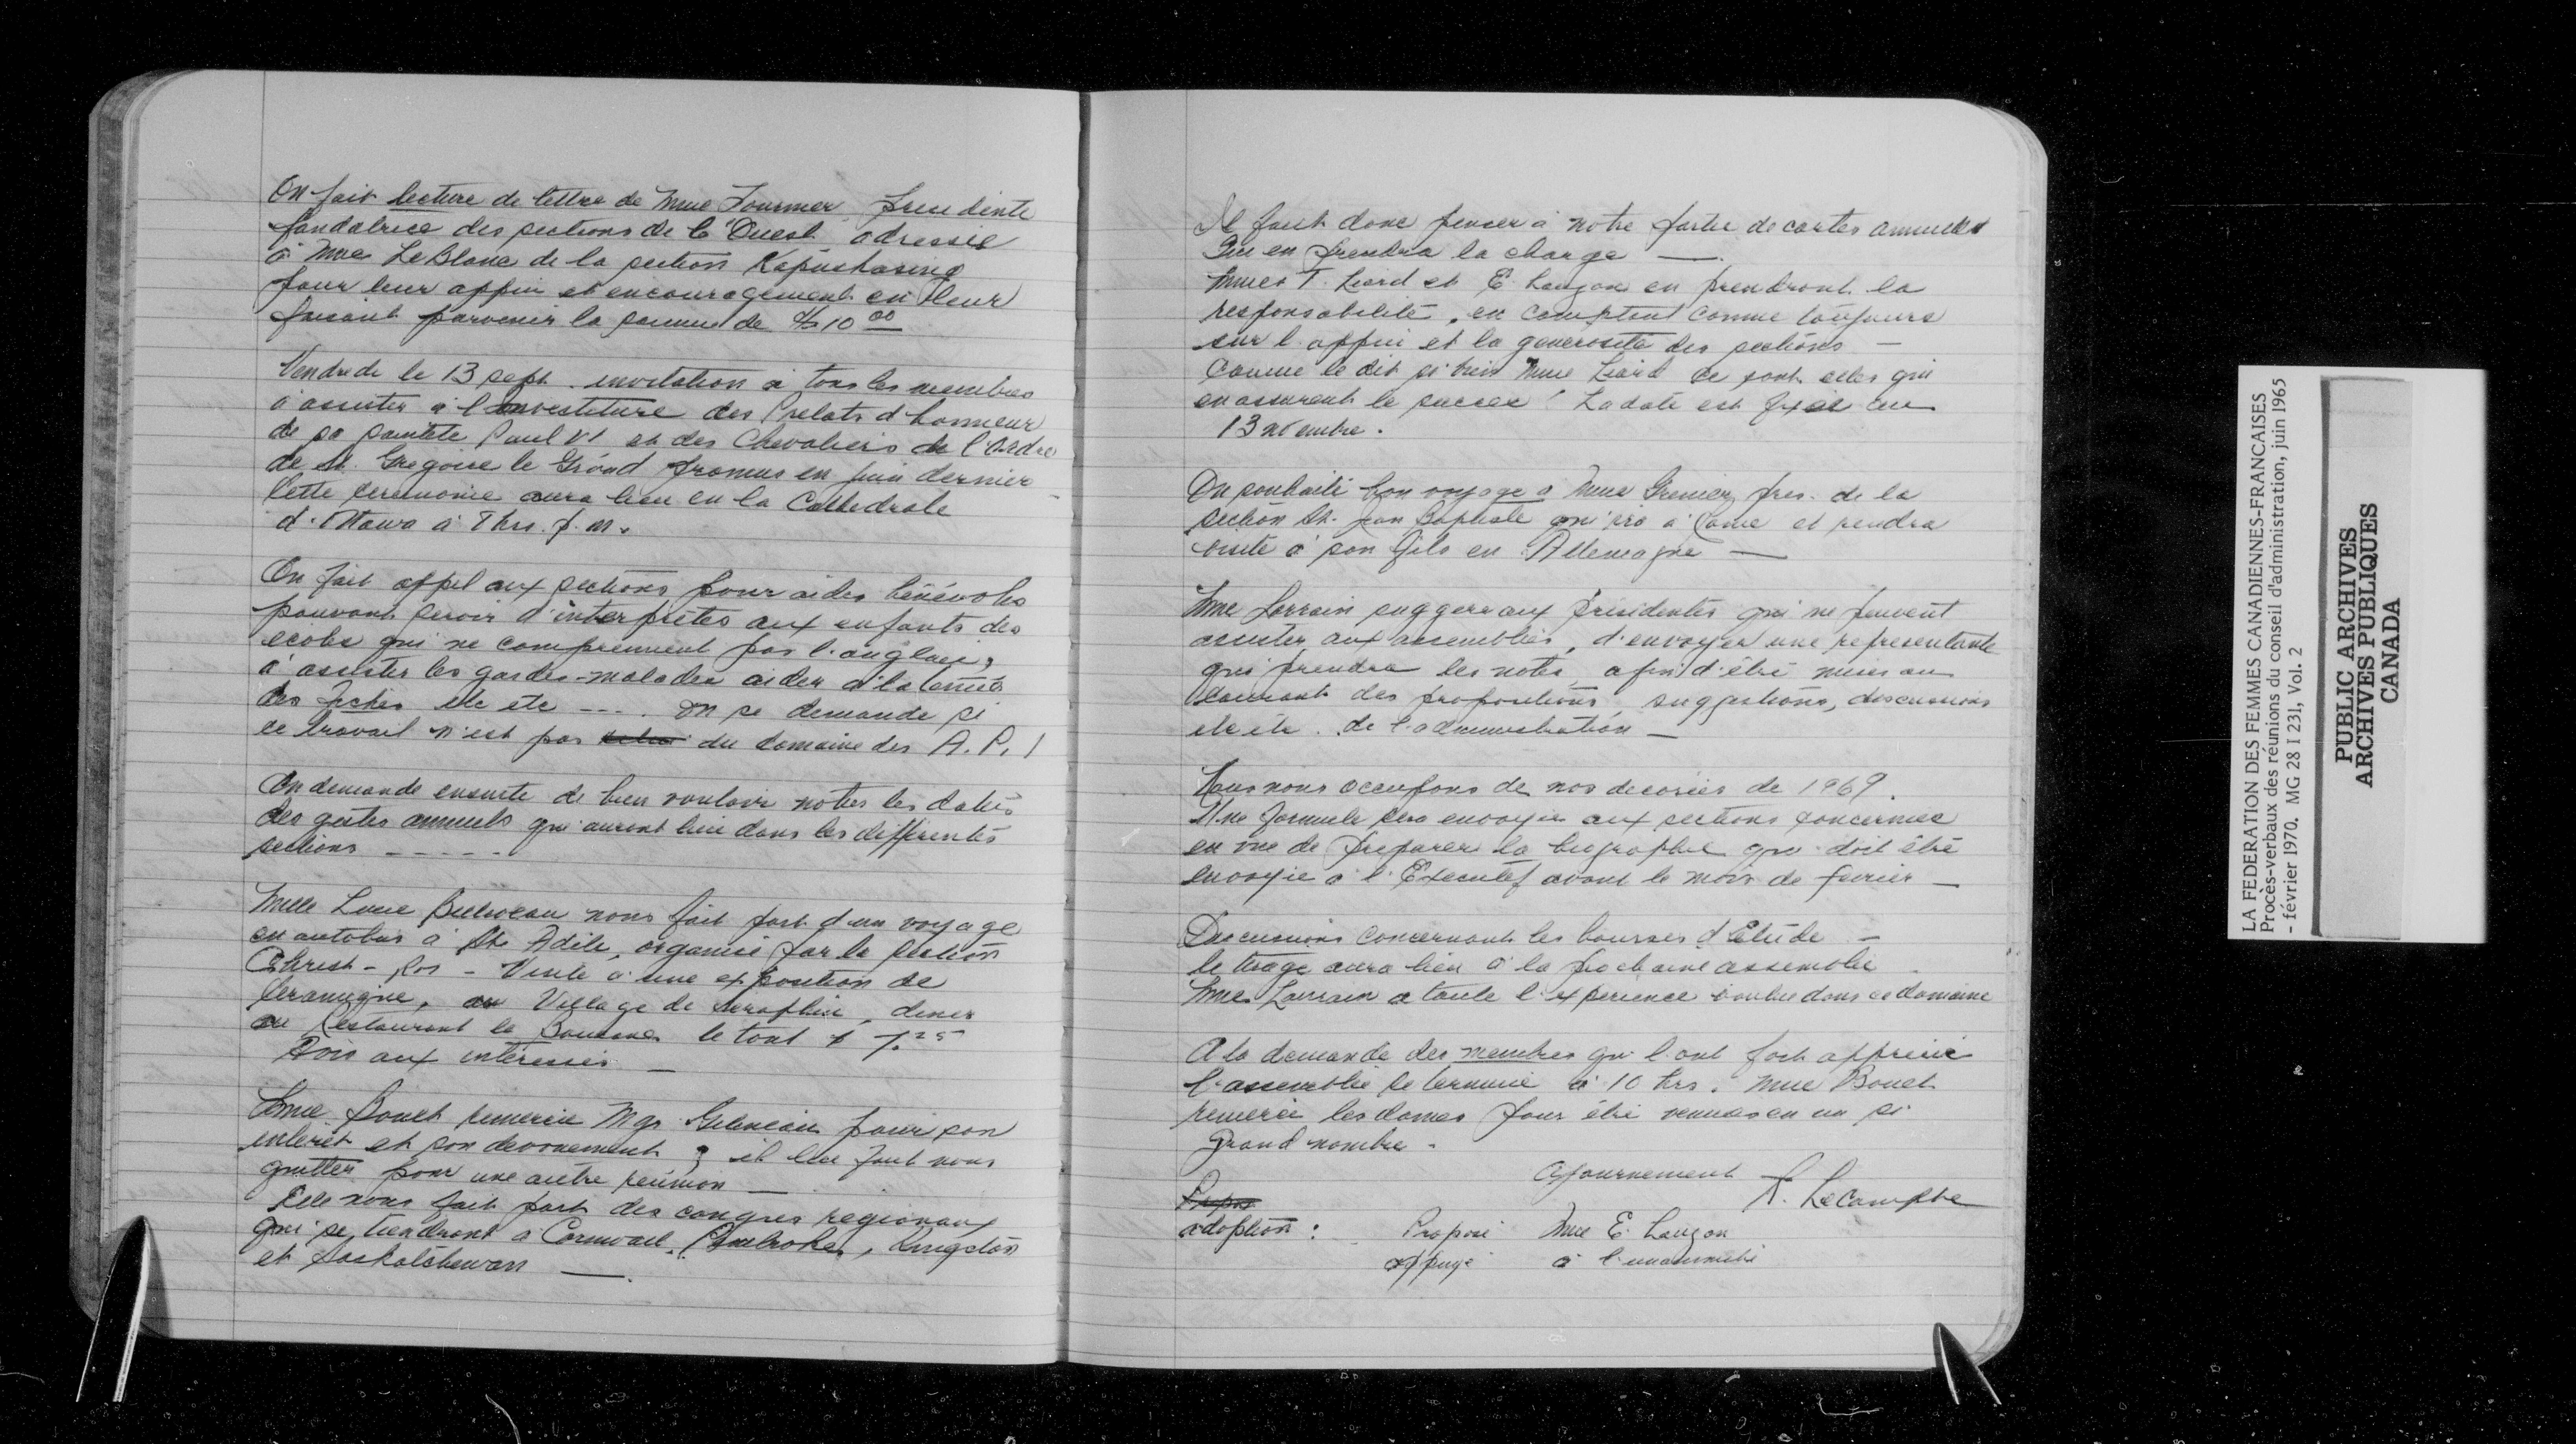 On fait lecture de lettre de Mme Fournier presidente
fondatrice des sections de l'Ouest adressée
à Mme LeBlanc de la section Kapuskasing
pour leur appui et encouragement en leur
faisant parvenir la somme de $10 00
Vendredi le 13 sept. invitation à tous les membres
à assister à l'investiture des Prelats d'honneur
de sa sainteté Paul VI et des Chevaliers de l'Ordre
de St. Gregoire le Grand promus en juin dernier -
Cette ceremonie aura lieu en la Cathedrale
d'Ottawa à 7 hrs. p.m.
On fait appel aux sections pour aides bénévoles
pouvant servir d'interprètes aux enfants des
ecoles qui ne comprennent pas l'anglais,
à assister les gardes-malades aider à la tenue
des fiches etc etc ---. On se demande si
ce travail n'est pas du domaine des A.P.I
On demande ensuite de bien vouloir noter les dates
des gestes annuels qui auront lieu dans les differentes
sections -----
Melle Lucie nous fait part d'un voyage
en autobus à Ste Adèle, organisé par la section
Christ-Roi - Visite à une exposition de
Ceramique, au Village de Seraphin, diner
au Restaurant la le tout $ 7.25
Avis aux interessés —
Mme Bouet remercie Mgr pour son
interêt et son devouement ; il lui faut nous
quitter pour une autre reunion —
Elle nous fait part des congres regionaux
qui se tiendront à Cornwall, Pembroke, Kingston
et Saskatchewan —.
Il faut donc penser à notre partie de cartes annuelle
Qui en prendra la charge —.
Mmes T. Liard et E. Lauzon en prendront la
responsabilité, en comptant comme toujours
sur l'appui et la generosité des sections —
Comme le dit si bien Mme Liard ce sont elles qui
en assurent le succes! La date est fixée au
13 novembre.
On souhaite bon voyage à Mme Grenier, pres. de la
section St. Jean Baptiste qui ira à Rome et rendra
visite à son fils en Allemagne —
Mme Lorrain suggere aux Présidentes qui ne peuvent
assister aux assemblées, d'envoyer une representante
qui prendra les notes, afin d'être mises au
courant des propositions suggestions, discussions
etc etc. de l'administration —
Nous nous occupons de nos decorées de 1969.
Une formule sera envoyée aux sections concernées
en vue de preparer la biographie qui doit être
envoyée à l'Executif avant le mois de fevrier —
Discussions concernant les bourses d'Etude —
le tirage aura lieu à la prochaine assemblée.
Mme Lorrain a toute l'experience voulue dans ce domaine
A la demande des membres qui l'ont fort apprecié
l'assemblée se termine à 10 hrs. Mme Bouet
remercie les dames pour être venues en un si
grand nombre.
Ajournement
Lecompte
Propos
adoption: Proposé Mme E. Lauzon
appuyé à l'unanimité
LA FEDERATION DES FEMMES CANADIENNES-FRANCAISES
Procès-verbaux des réunions du conseil d'administration, juin 1965
- février 1970. MG 28 I 231, Vol. 2
PUBLIC ARCHIVES
ARCHIVES PUBLIQUES
CANADA